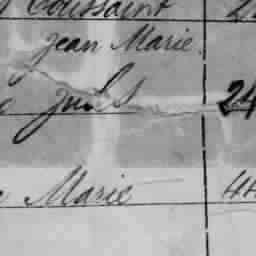 Toussaint 2
Jean Marie
Jules 24
Marie 44